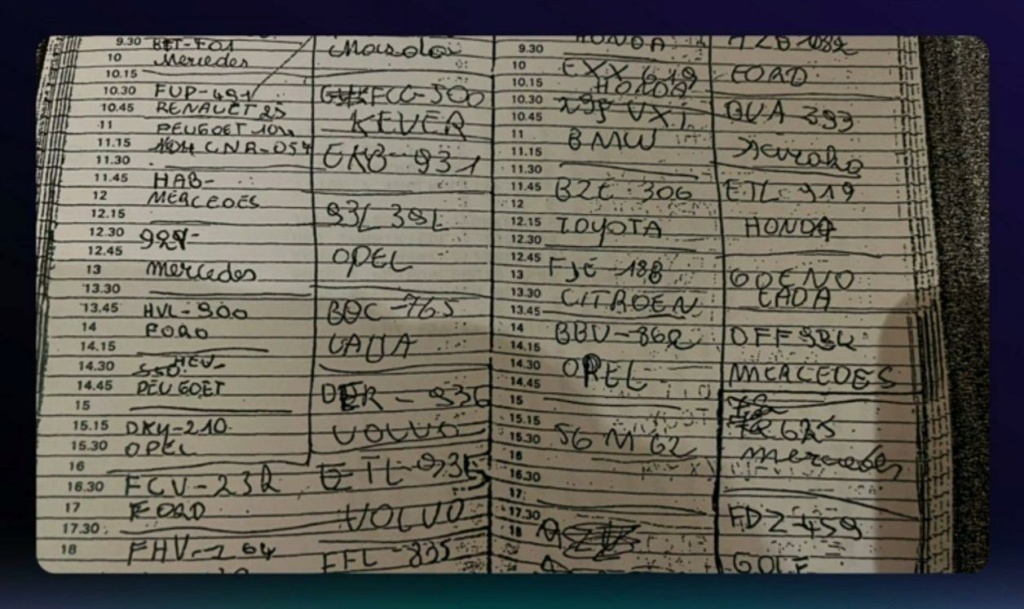 9.30 BET-F01
10 Mercedes
10.15
10.30 FUP-491
10.45 RENAULT 25
11 PEUGOET 104
11.15 CNR-054
11.30
11.45 HAB-
12 MERCEDES
12.15
12.30 924-
12.45
13 mercedes
13.30
13.45 HVL-900
14 FORD
14.15
14.30 550 HEV-
14.45 PEUGOET
15
15.15 DKY-210
15.30 OPEL
16
16.30 FCV-232
17 FORD
17.30
18 FHV-264
Mazda
FCG-500
KEVER
EKB-931
93L 39L
OPEL
BOC-765
LADA
DER-936
VOLVO
ETL-935
VOLVO
FFL-835
9.30 HONDA
10 EXX 619
10.15 HONDA
10.30 295 VXT
10.45
11 BMW
11.15
11.30
11.45 BZE-306
12
12.15 TOYOTA
12.30
12.45 FJE-188
13
13.30 CITROEN
13.45
14 BBU-862
14.15
14.30 OPEL
14.45
15
15.15
15.30 56 M 62
16
16.30
17
17.30
18
FORD
BUA 393
ETL-919
HONDA
LADA
DFF
MERCEDES
625
mercedes
FDZ-459
GOLF